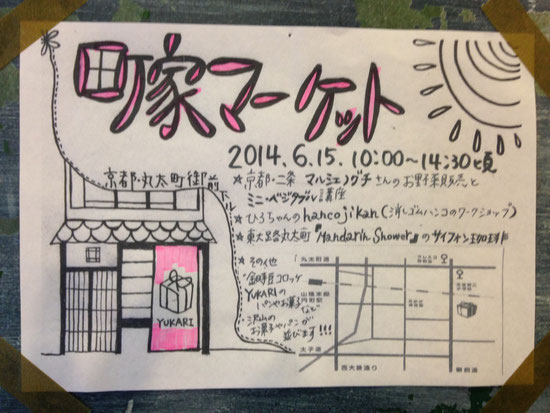 町家マーケット
2014.6.15. 10:00〜14:30頃
京都・丸太町御前下ル
★京都・二条 マルシェノグチさんのお野菜販売と
ミニ・ベジタブル講座
★ひろちゃんのhancojikan(消しゴムハンコのワークショップ)
★東大路丸太町『Mandarin Shower』のサイフォン珈琲
★その他
YUKARIの
パンやお菓子など
沢山の
お菓子やパンが
並びます!!!
YUKARI
丸太町通
山陰本線
円町駅
太子道
西大路通り
御前通